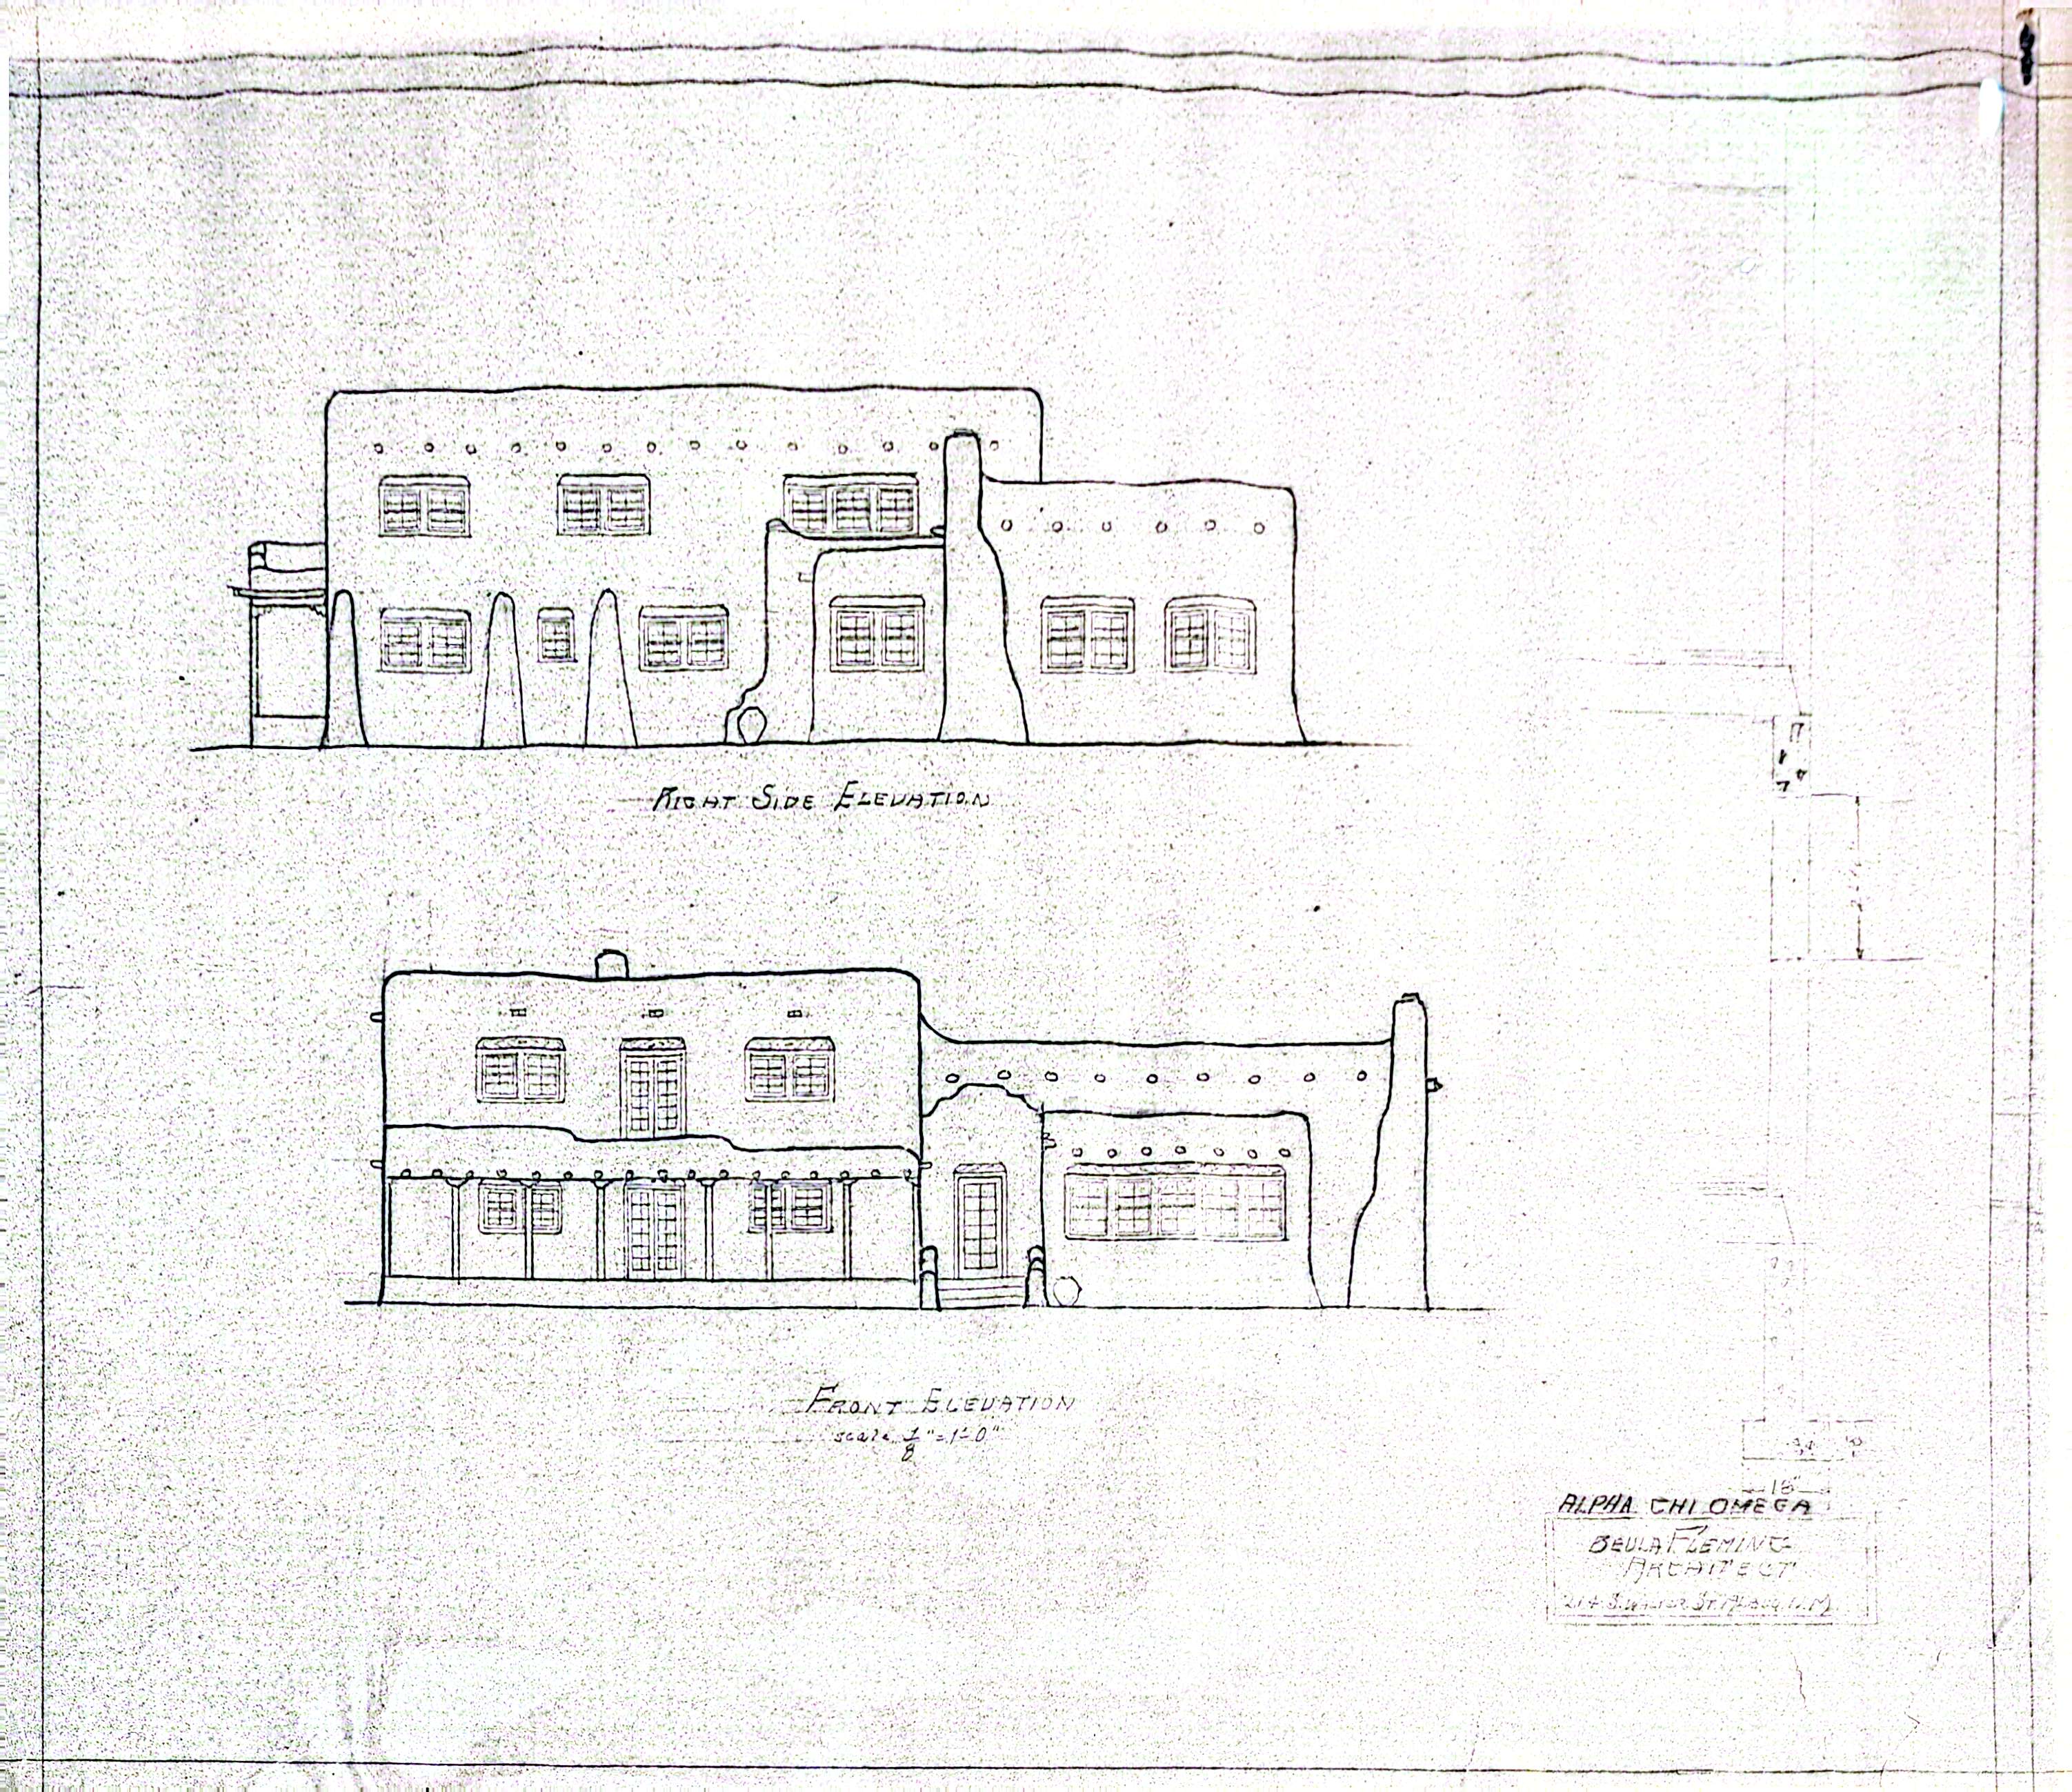 RIGHT SIDE ELEVATION
FRONT ELEVATION
scale 1/8" = 1'-0"
18"
ALPHA CHI OMEGA
BEULA FLEMING
ARCHITECT